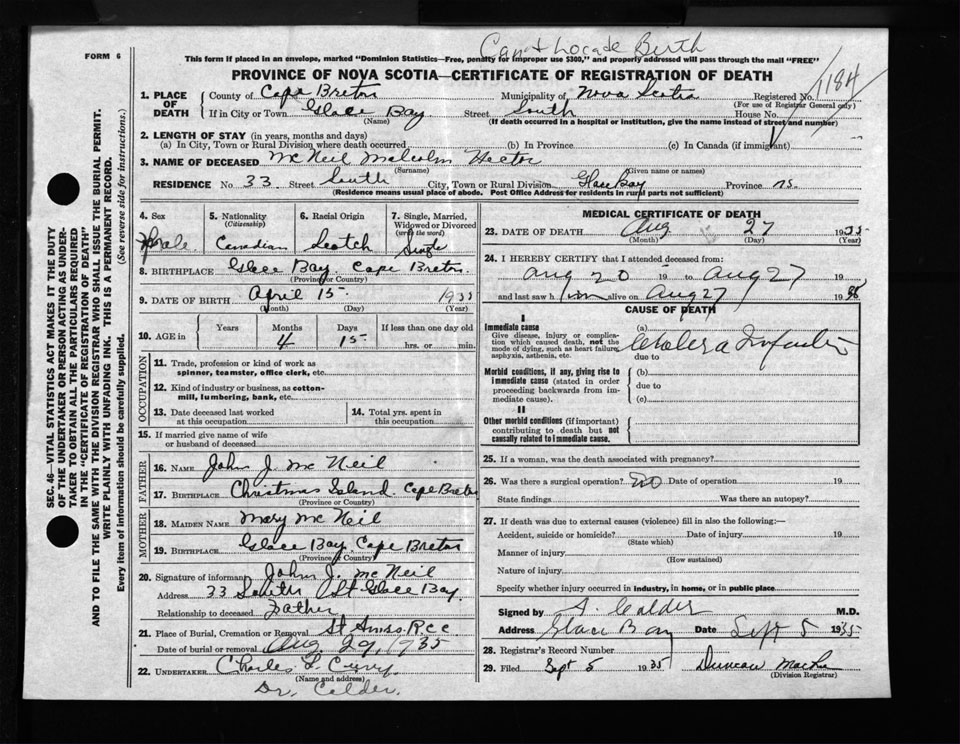 Can't Locate Birth
FORM 6
This form if placed in an envelope, marked "Dominion Statistics—Free, penalty for improper use $300," and properly addressed will pass through the mail "FREE"
PROVINCE OF NOVA SCOTIA—CERTIFICATE OF REGISTRATION OF DEATH
1184
1. PLACE OF DEATH
County of Cape Breton Municipality of Nova Scotia Registered No.
(For use of Registrar General only)
If in City or Town Glace Bay Street South House No.
(Name) (If death occurred in a hospital or institution, give the name instead of street and number)
2. LENGTH OF STAY (in years, months and days)
(a) In City, Town or Rural Division where death occurred (b) In Province (c) In Canada (if immigrant)
3. NAME OF DECEASED McNeil Malcolm Hector
(Surname) (Given name or names)
RESIDENCE No 33 Street South City, Town or Rural Division Glace Bay Province N.S.
(Residence means usual place of abode. Post Office Address for residents in rural parts not sufficient)
4. Sex
Male
5. Nationality
(Citizenship)
Canadian
6. Racial Origin
Scotch
7. Single, Married,
Widowed or Divorced
(write the word)
Single
8. BIRTHPLACE Glace Bay. Cape Breton
(Province or Country)
9. DATE OF BIRTH April 15 1935
(Month) (Day) (Year)
10. AGE in
Years Months Days If less than one day old
4 15 hrs. or min.
OCCUPATION
11. Trade, profession or kind of work as
spinner, teamster, office clerk, etc.
12. Kind of industry or business, as cotton-
mill, lumbering, bank, etc.
13. Date deceased last worked
at this occupation
14. Total yrs. spent in
this occupation
15. If married give name of wife
or husband of deceased
FATHER
16. NAME John J. McNeil
17. BIRTHPLACE Christmas Island Cape Breton
(Province or Country)
MOTHER
18. MAIDEN NAME Mary McNeil
19. BIRTHPLACE Glace Bay. Cape Breton
(Province or Country)
20. Signature of informant John J. McNeil
Address 33 South St Glace Bay.
Relationship to deceased Father
21. Place of Burial, Cremation or Removal St
Date of burial or removal Aug 29, 1935
22. UNDERTAKER Charles
(Name and address)
Dr. Calder.
MEDICAL CERTIFICATE OF DEATH
23. DATE OF DEATH Aug 27 1935
(Month) (Day) (Year)
24. I HEREBY CERTIFY that I attended deceased from:
Aug 20 19 to Aug 27 19
and last saw h im alive on Aug 27 19 35
CAUSE OF DEATH
I
Immediate cause
Give disease, injury or complica-
tion which caused death, not the
mode of dying, such as heart failure,
asphyxia, asthenia, etc.
(a) Cholera Infantum
due to
Morbid conditions, if any, giving rise to
immediate cause (stated in order
proceeding backwards from im-
mediate cause).
(b)
due to
(c)
II
Other morbid conditions (if important)
contributing to death but not
causally related to immediate cause.
25. If a woman, was the death associated with pregnancy?
26. Was there a surgical operation? No Date of operation 19
State findings Was there an autopsy?
27. If death was due to external causes (violence) fill in also the following:—
Accident, suicide or homicide? Date of injury 19
(State which)
Manner of injury
(How sustained)
Nature of injury
Specify whether injury occurred in industry, in home, or in public place
Signed by A. Calder M.D.
Address Glace Bay Date Sept 5 1935
28. Registrar's Record Number
29. Filed Sept 5 1935 Duncan
(Division Registrar)
SEC. 46—VITAL STATISTICS ACT MAKES IT THE DUTY
OF THE UNDERTAKER OR PERSON ACTING AS UNDER-
TAKER TO OBTAIN ALL THE PARTICULARS REQUIRED
IN THE "CERTIFICATE OF REGISTRATION OF DEATH"
AND TO FILE THE SAME WITH THE DIVISION REGISTRAR WHO SHALL ISSUE THE BURIAL PERMIT.
WRITE PLAINLY WITH UNFADING INK. THIS IS A PERMANENT RECORD.
Every item of information should be carefully supplied. (See reverse side for instructions.)